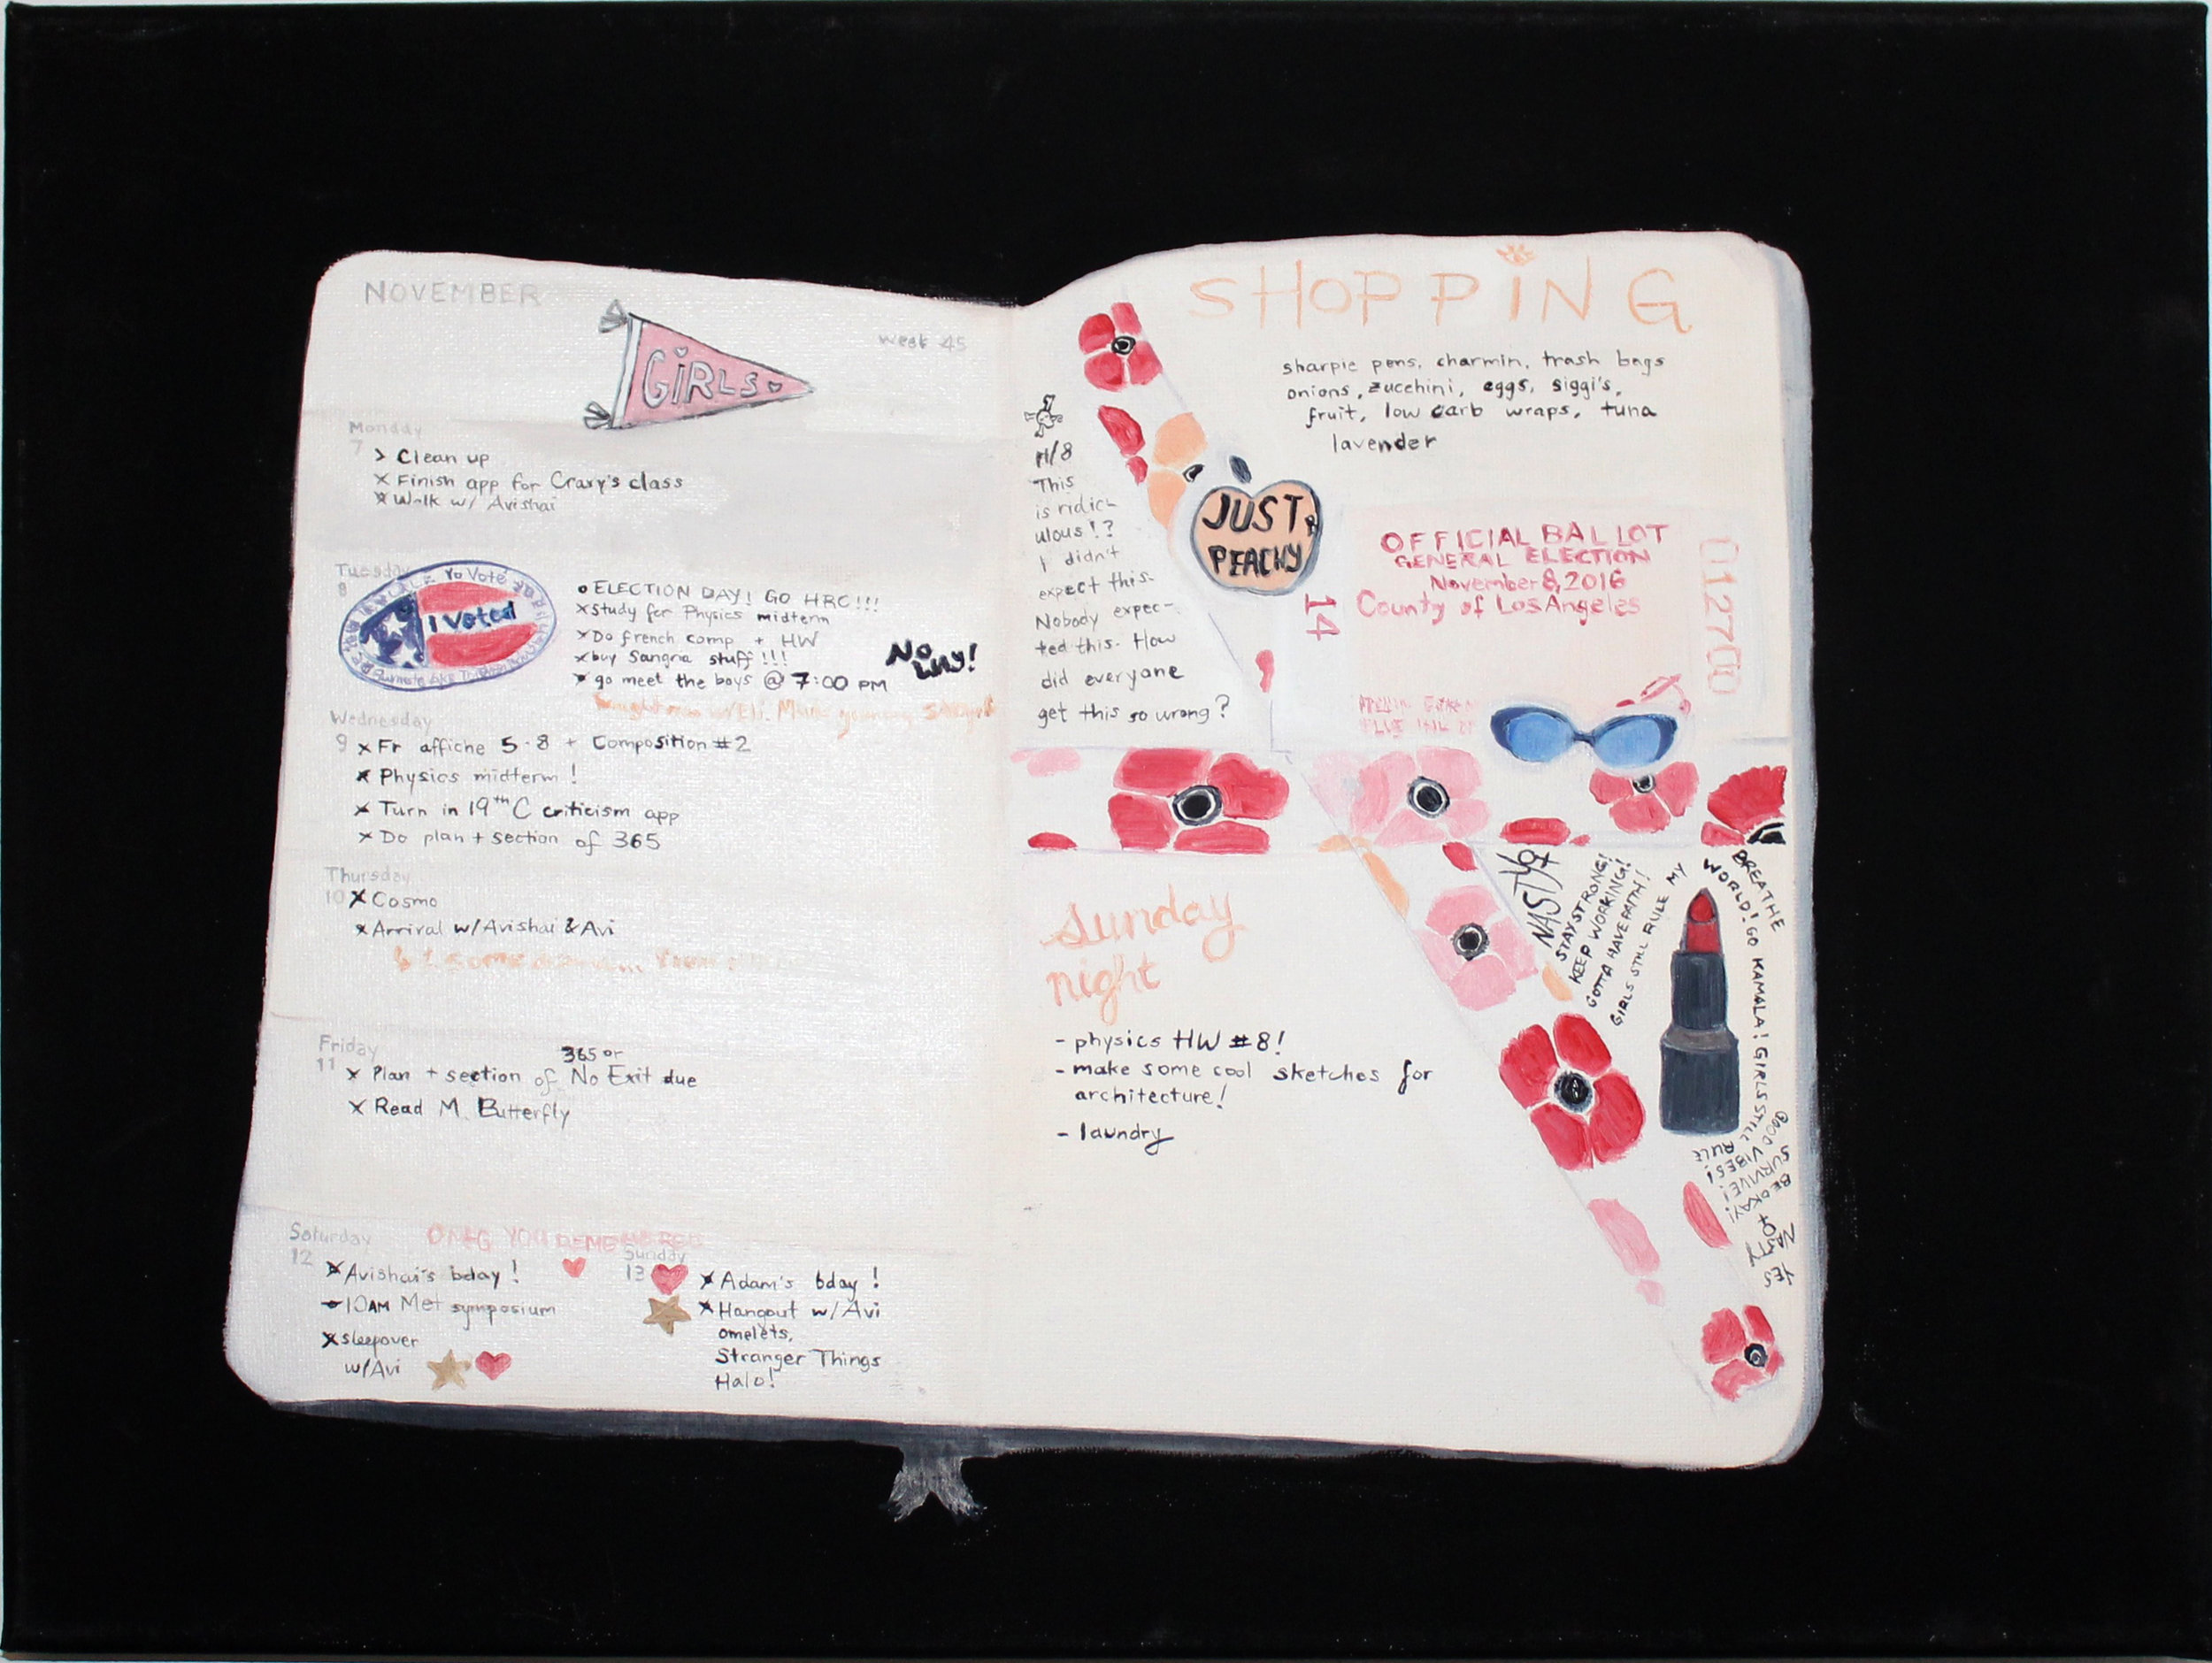 NOVEMBER
week 45
GIRLS
Monday
7
> Clean up
x Finish app for Crary's class
x Walk w/ Avishai
Tuesday
8
Yo Voté
I Voted
o ELECTION DAY! GO HRC!!!
x Study for Physics midterm
x Do french comp + HW
x buy Sangria stuff!!!
x go meet the boys @ 7:00 PM
No Way!
Wednesday
9
x Fr affiche 5-8 + Composition #2
x Physics midterm!
x Turn in 19th C criticism app
x Do plan + section of 365
Thursday
10
x Cosmo
x Arrival w/ Avishai & Avi
Friday
11
365 or
x Plan + section of No Exit due
x Read M. Butterfly
Saturday
12
OMG YOU REMEMBERED
x Avishai's bday!
- 10AM Met symposium
x sleepover
w/Avi
Sunday
13
x Adam's bday!
x Hangout w/ Avi
omelets,
Stranger Things
Halo!
SHOPPING
sharpie pens, charmin, trash bags
onions, zucchini, eggs, siggi's,
fruit, low carb wraps, tuna
lavender
11/8
This
is ridic-
ulous!?
I didn't
expect this.
Nobody expec-
ted this. How
did everyone
get this so wrong?
JUST
PEACHY
OFFICIAL BALLOT
GENERAL ELECTION
November 8, 2016
County of Los Angeles
14
012700
sunday
night
- physics HW #8!
- make some cool sketches for
architecture!
- laundry
NASTY
STAY STRONG!
KEEP WORKING!
GOTTA HAVE FAITH!
GIRLS STILL RULE MY
WORLD! GO KAMALA! GIRLS STILL
RULE
BREATHE
GOOD VIBES!
SURVIVE!
BE OKAY!
NASTY
YES